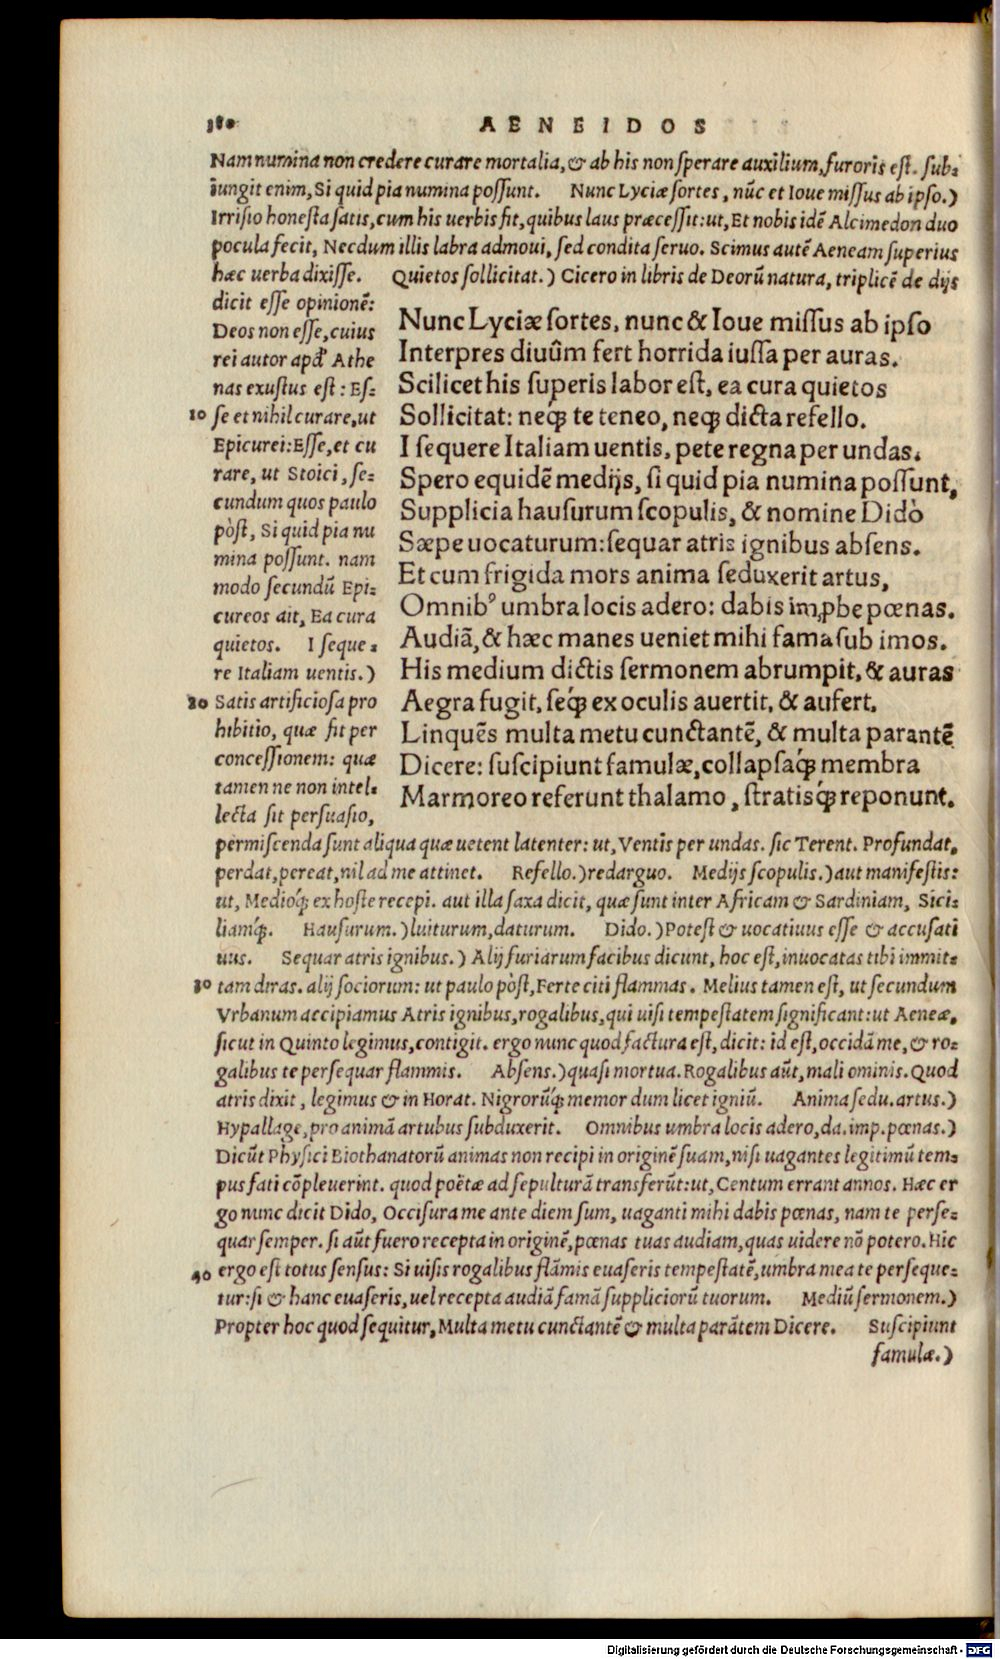 380
AENEIDOS
Nam numina non credere curare mortalia, & ab his non sperare auxilium, furoris est. sub-
iungit enim, Si quid pia numina possunt. Nunc Lyciæ sortes, nũc et Ioue missus ab ipso.)
Irrisio honesta satis, cum his uerbis fit, quibus laus præcessit: ut, Et nobis idẽ Alcimedon duo
pocula fecit, Necdum illis labra admoui, sed condita seruo. Scimus autẽ Aeneam superius
hæc uerba dixisse. Quietos sollicitat.) Cicero in libris de Deorũ natura, triplicẽ de dijs
dicit esse opinionẽ:
Deos non esse, cuius
rei autor apđ Athe
nas exustus est: Es-
10 se et nihil curare, ut
Epicurei: Esse, et cu
rare, ut Stoici, se-
cundum quos paulo
pòst, Si quid pia nu
mina possunt. nam
modo secundũ Epi-
cureos ait, Ea cura
quietos. I seque-
re Italiam uentis.)
20 Satis artificiosa pro
hibitio, quæ fit per
concessionem: quæ
tamen ne non intel-
lecta sit persuasio,
Nunc Lyciæ sortes, nunc & Ioue missus ab ipso
Interpres diuûm fert horrida iussa per auras.
Scilicet his superis labor est, ea cura quietos
Sollicitat: neq́; te teneo, neq; dicta refello.
I sequere Italiam uentis, pete regna per undas.
Spero equidẽ medijs, si quid pia numina possunt,
Supplicia hausurum scopulis, & nomine Didò
Sæpe uocaturum: sequar atris ignibus absens.
Et cum frigida mors anima seduxerit artus,
Omnibꝰ umbra locis adero: dabis im͂pbe pœnas.
Audiã, & hæc manes ueniet mihi fama sub imos.
His medium dictis sermonem abrumpit, & auras
Aegra fugit, seq́; ex oculis auertit, & aufert,
Linquẽs multa metu cunctantẽ, & multa parantẽ
Dicere: suscipiunt famulæ, collapsaq́; membra
Marmoreo referunt thalamo, stratisq́; reponunt.
permiscenda sunt aliqua quæ uetent latenter: ut, Ventis per undas. sic Terent. Profundat,
perdat, pereat, nil ad me attinet. Refello.) redarguo. Medijs scopulis.) aut manifestis:
ut, Medioq́; ex hoste recepi. aut illa saxa dicit, quæ sunt inter Africam & Sardiniam, Sici-
liamq́;. Hausurum.) luiturum, daturum. Dido.) Potest & uocatiuus esse & accusati
uus. Sequar atris ignibus.) Alij furiarum facibus dicunt, hoc est, inuocatas tibi immit-
30 tam diras. alij sociorum: ut paulo pòst, Ferte citi flammas. Melius tamen est, ut secundum
Vrbanum accipiamus Atris ignibus, rogalibus, qui uisi tempestatem significant: ut Aeneæ,
sicut in Quinto legimus, contigit. ergo nunc quod factura est, dicit: id est, occidã me, & ro-
galibus te persequar flammis. Absens.) quasi mortua. Rogalibus aũt, mali ominis. Quod
atris dixit, legimus & in Horat. Nigrorũq́; memor dum licet igniũ. Anima sedu. artus.)
Hypallage, pro animã artubus subduxerit. Omnibus umbra locis adero, da. imp. pœnas.)
Dicũt Physici Biothanatorũ animas non recipi in originẽ suam, nisi uagantes legitimũ tem-
pus fati cõpleuerint. quod poëtæ ad sepulturã transferũt: ut, Centum errant annos. Hæc er
go nunc dicit Dido, Occisura me ante diem sum, uaganti mihi dabis pœnas, nam te perse-
quar semper. si aũt fuero recepta in originẽ, pœnas tuas audiam, quas uidere nõ potero. Hic
40 ergo est totus sensus: Si uisis rogalibus flãmis euaseris tempestatẽ, umbra mea te perseque-
tur: si & hanc euaseris, uel recepta audiã famã suppliciorũ tuorum. Mediũ sermonem.)
Propter hoc quod sequitur, Multa metu cunctantẽ & multa parãtem Dicere. Suscipiunt
famulæ.)
Digitalisierung gefördert durch die Deutsche Forschungsgemeinschaft - DFG